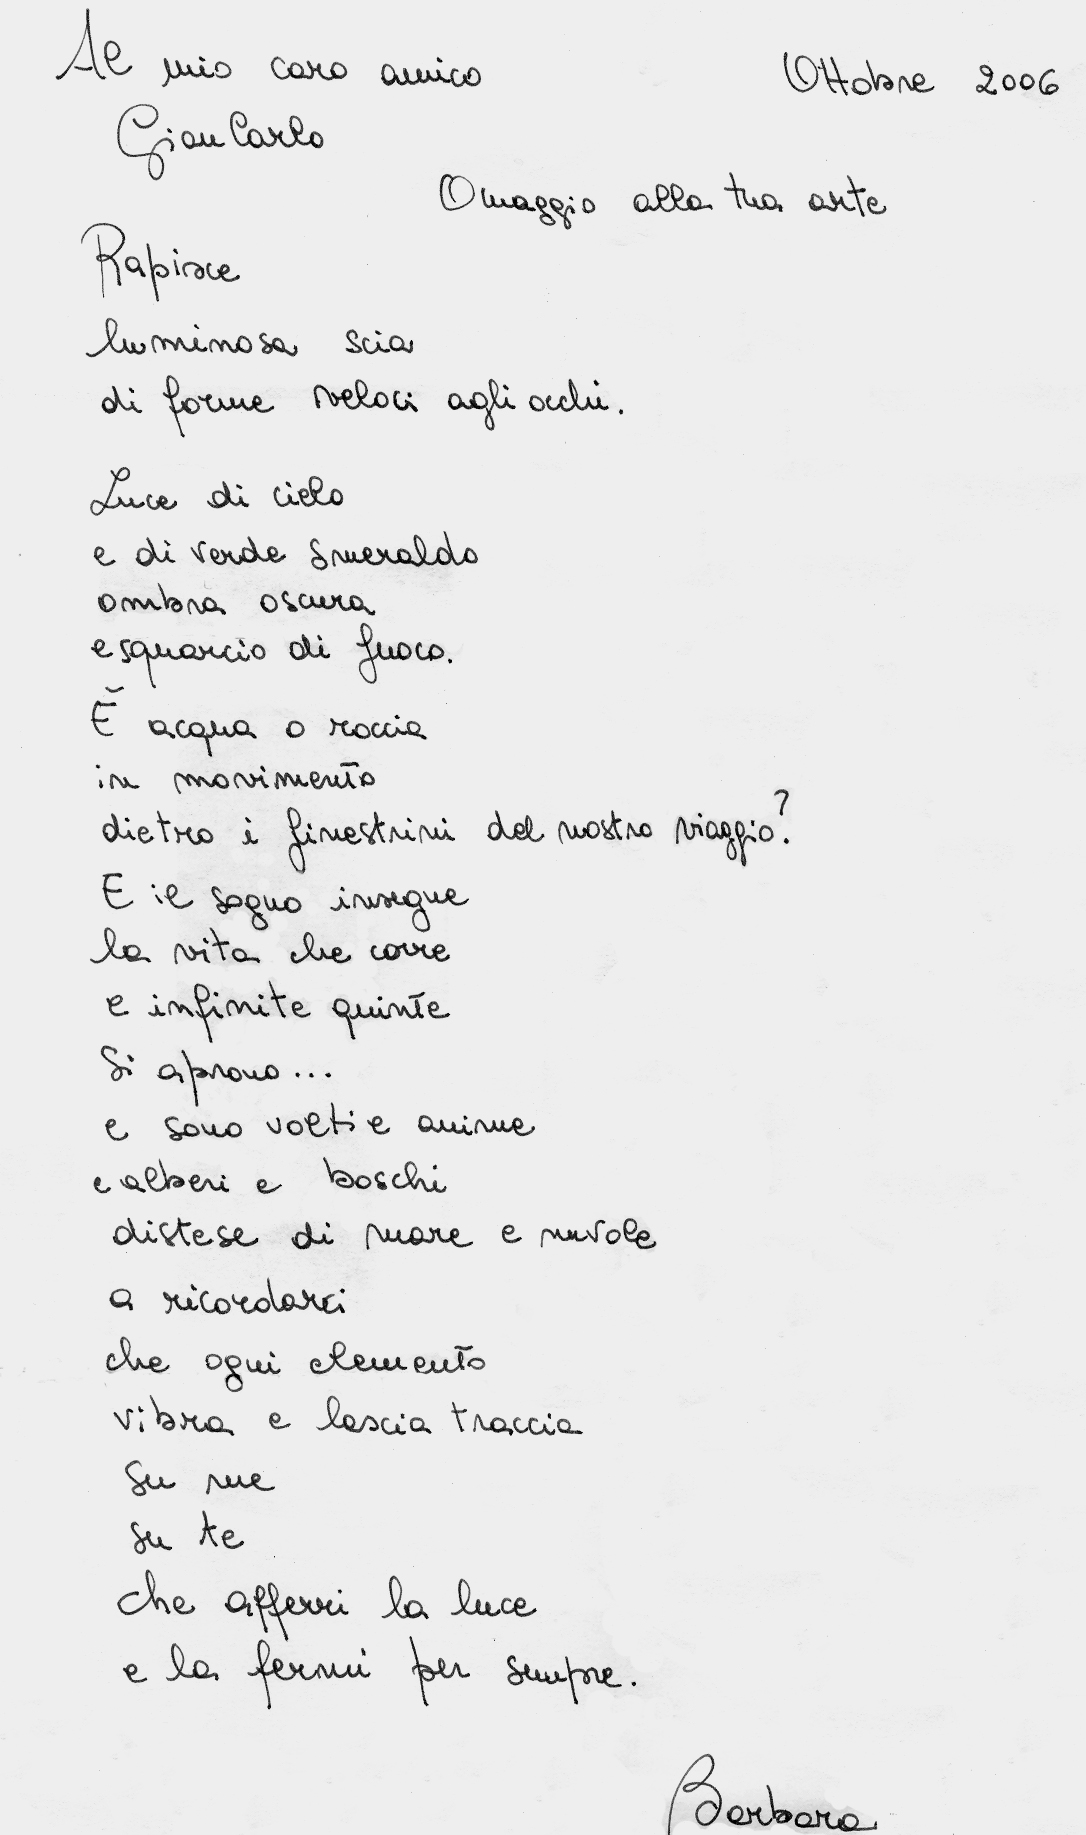 Al mio caro amico Ottobre 2006
Gian Carlo
Omaggio alla tua arte
Rapisce
luminosa scia
di forme veloci agli occhi.
Luce di cielo
e di verde smeraldo
ombra oscura
e squarcio di fuoco.
È acqua o roccia
in movimento
dietro i finestrini del nostro viaggio?
E il sogno insegue
la vita che corre
e infinite quinte
si aprono...
e sono volti e anime
e alberi e boschi
distese di mare e nuvole
a ricordarci
che ogni elemento
vibra e lascia traccia
su me
su te
che afferri la luce
e la fermi per sempre.
Barbara